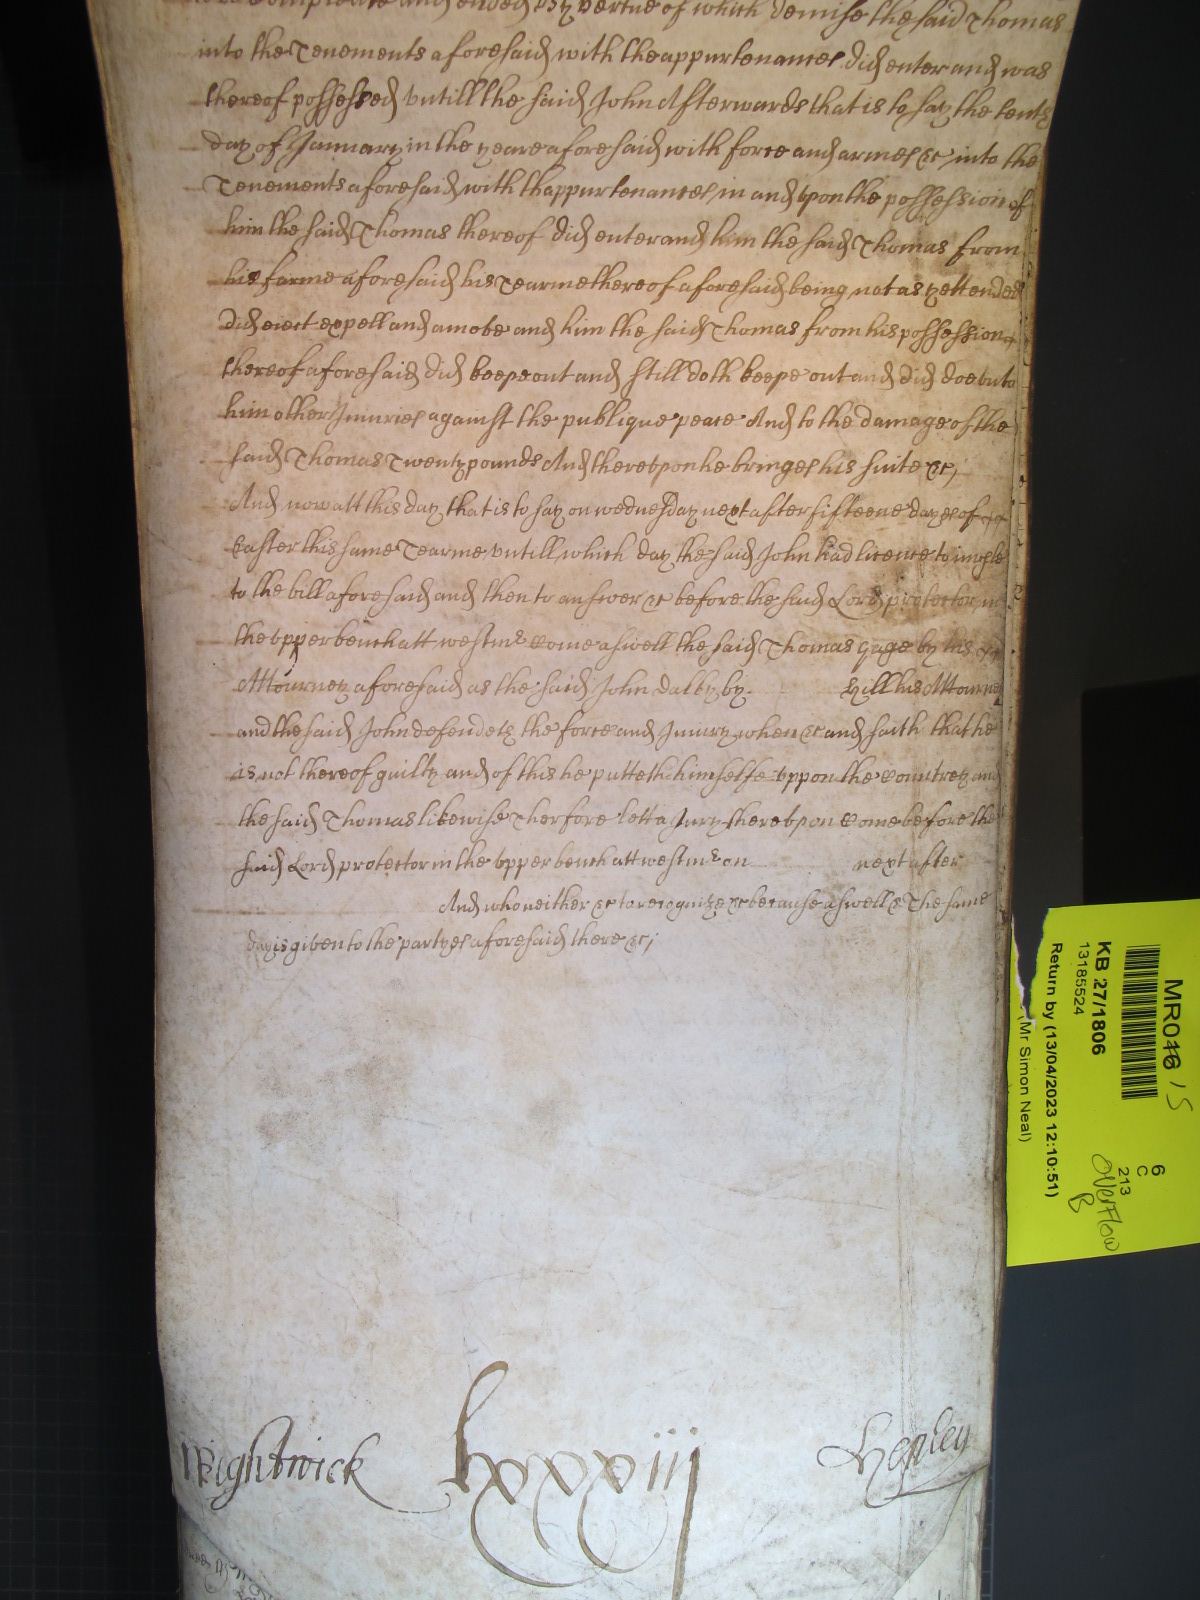 and ended By vertue of which demise the said Thomas
into the Tenements aforesaid with the appurtenances did enter and was
thereof possessed vntill the said John Afterwards that is to say the tenth
day of January in the yeare aforesaid with force and armes &c into the
Tenements aforesaid with thappurtenances in and vpon the possession of
him the said Thomas thereof did enter and him the said Thomas from
his farme aforesaid his Tearme thereof aforesaid being not as yett ended
did eiect expell and amove and him the said Thomas from his possession
thereof aforesaid did keepe out and still doth keepe out and did doe vnto
him other Iniuries against the publique peace And to the damage of the
said Thomas Twenty pounds And therevpon he bringes his suite &c;
And now att this day that is to say on wednesday next after fifteene dayes of
Easter this same Tearme vntill which day the said John had licence to imple
to the bill aforesaid and then to answer &c before the said Lord protector in
the vpper bench att westmr come aswell the said Thomas Gage by his
Attourney aforesaid as the said John dalby by Hill his Attourney
and the said John defendeth the force and Iniury when &c and saith that he
is not thereof guilty and of this he putteth himselfe vppon the Countrey and
the said Thomas likewise Therfore lett a Jury therevpon Come before the
said Lord protector in the vpper bench att westmr on next after
And who neither &c to recognize &c because aswell &c The same
day is given to the partyes aforesaid there &c;
Wightwick lxxxiij Henley
MR016 15
KB 27/1806
13185524
Return by (13/04/2023 12:10:51)
(Mr Simon Neal)
6
C
213
overflow
B